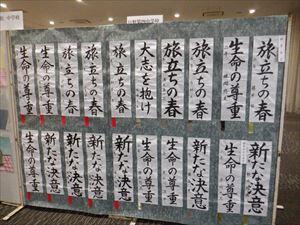 旅立ちの春
生命の尊重
旅立ちの春
旅立ちの春
大志を抱け
旅立ちの春
旅立ちの春
旅立ちの春
生命の尊重
生命の尊重
新たな決意
生命の尊重
新たな決意
生命の尊重
生命の尊重
新たな決意
新たな決意
新たな決意
新たな決意
生命の尊重
中学校